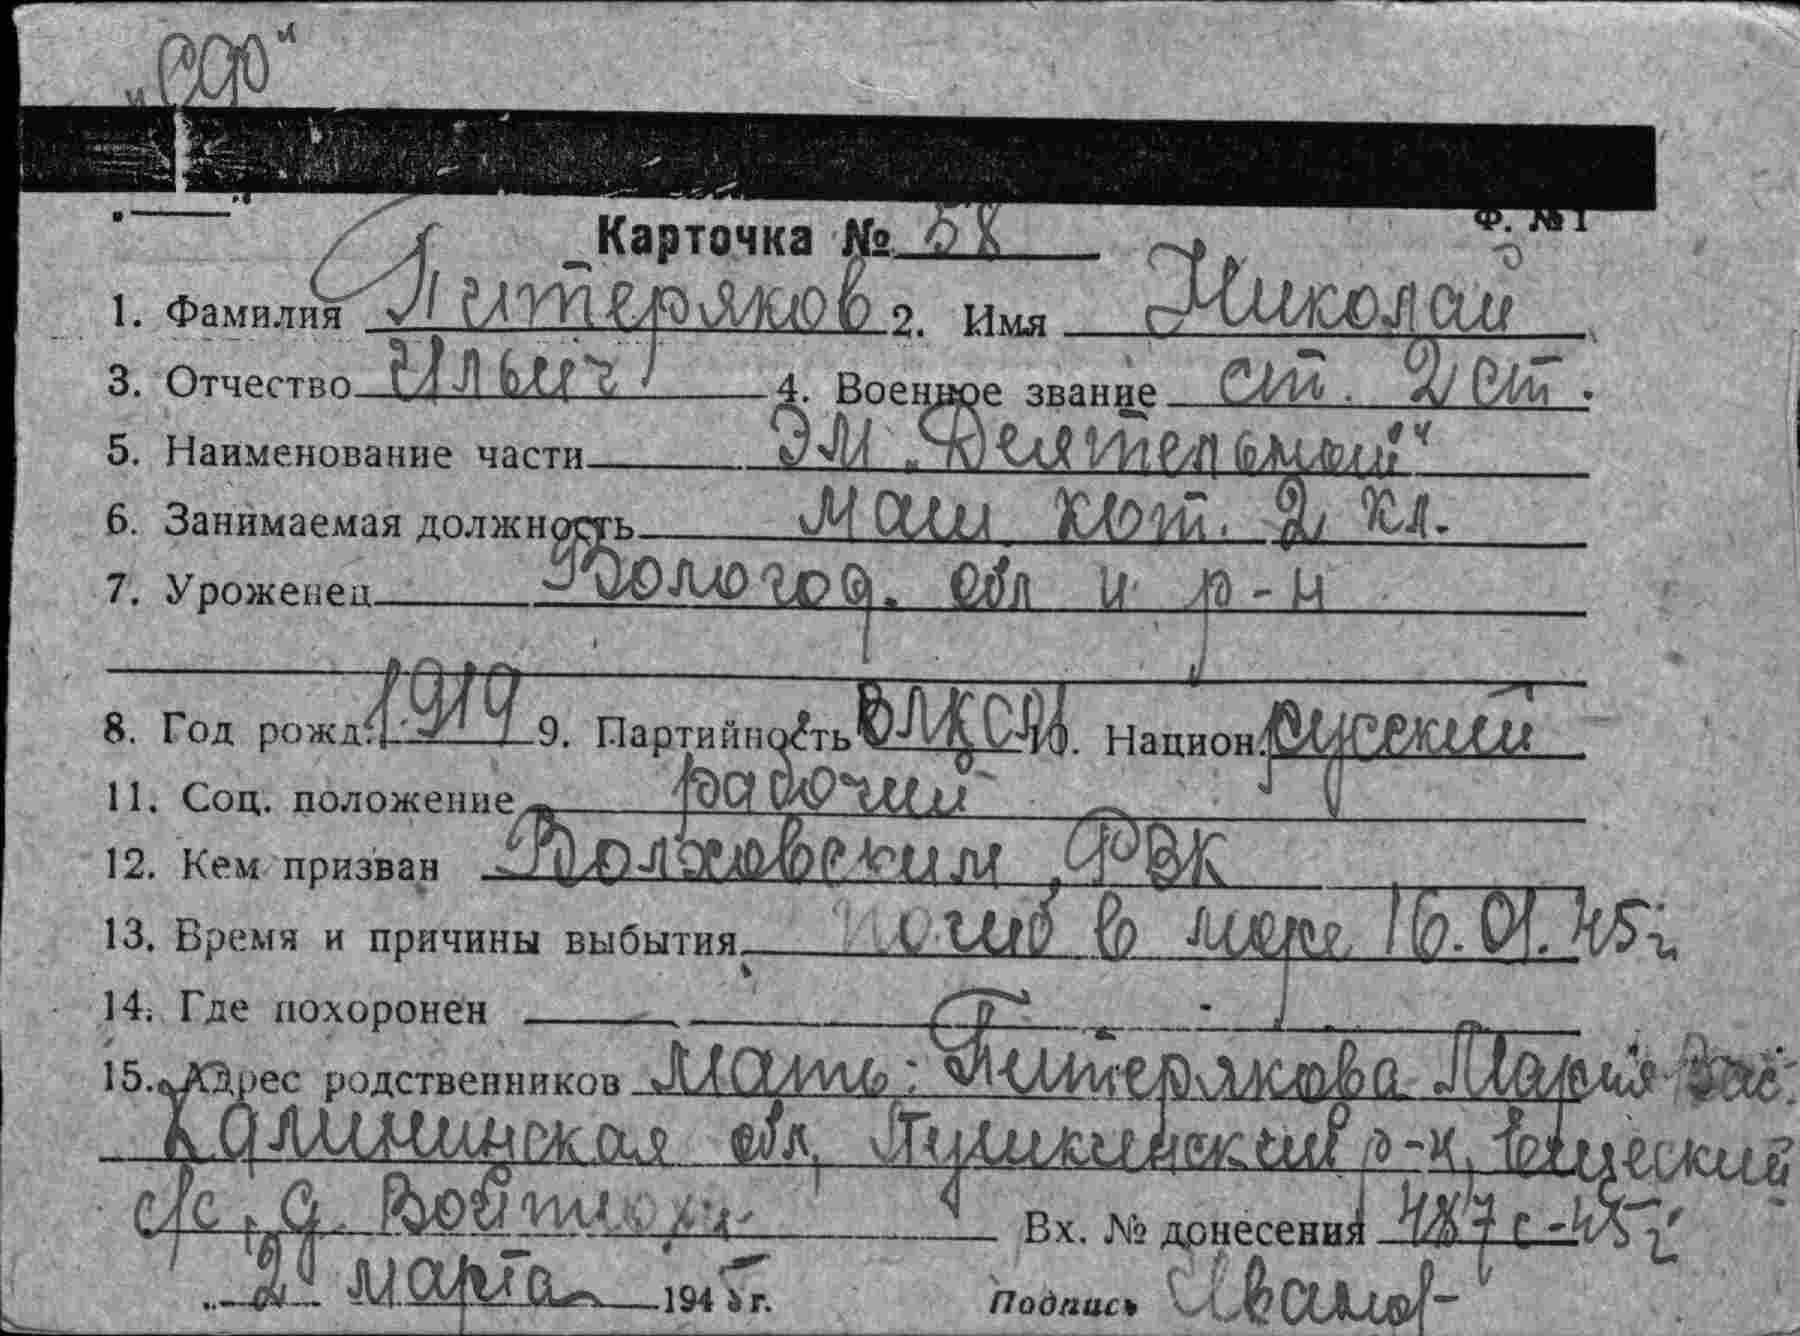 „СФ"
Ф. № 1
Карточка № 58
1. Фамилия Питеряков 2. Имя Николай
3. Отчество Ильич 4. Военное звание ст. 2 ст.
5. Наименование части ЭМ „Деятельный"
6. Занимаемая должность маш. кот. 2 кл.
7. Уроженец Вологод. обл и р-н
8. Год рожд. 1919 9. Партийность ВЛКСМ 10. Национ. русский
11. Соц. положение рабочий
12. Кем призван Волховским РВК
13. Время и причины выбытия погиб в море 16.01.45 г.
14. Где похоронен
15. Адрес родственников Мать: Питерякова Мария Вас.
Калининская обл, Пушкинский р-н,
с/с, д.
Вх. № донесения 487 с-45 г.
„2" марта 1945 г. Подпись Иванов